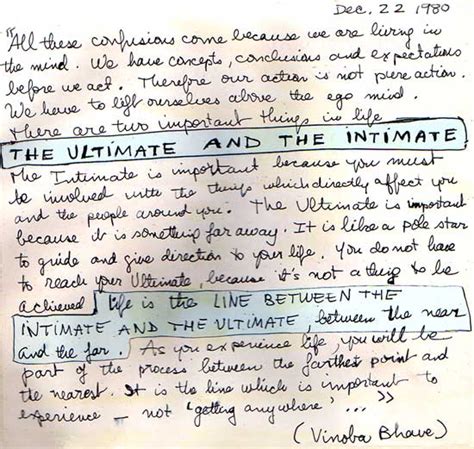 Dec. 22 1980
"All these confusions come because we are living in
the mind. We have concepts, conclusions and expectations
before we act. Therefore our action is not pure action.
We have to lift ourselves above the ego mind.
There are two important things in life
THE ULTIMATE AND THE INTIMATE
The Intimate is important because you must
be involved with the things which directly affect you
and the people around you. The Ultimate is important
because it is something far away. It is like a pole star
to guide and give direction to your life. You do not have
to reach your Ultimate, because it's not a thing to be
achieved. Life is the LINE BETWEEN THE
INTIMATE AND THE ULTIMATE, between the near
and the far. As you experience life, you will be
part of the process between the farthest point and
the nearest. It is the line which is important to
experience — not 'getting anywhere' ... "
(Vinoba Bhave)